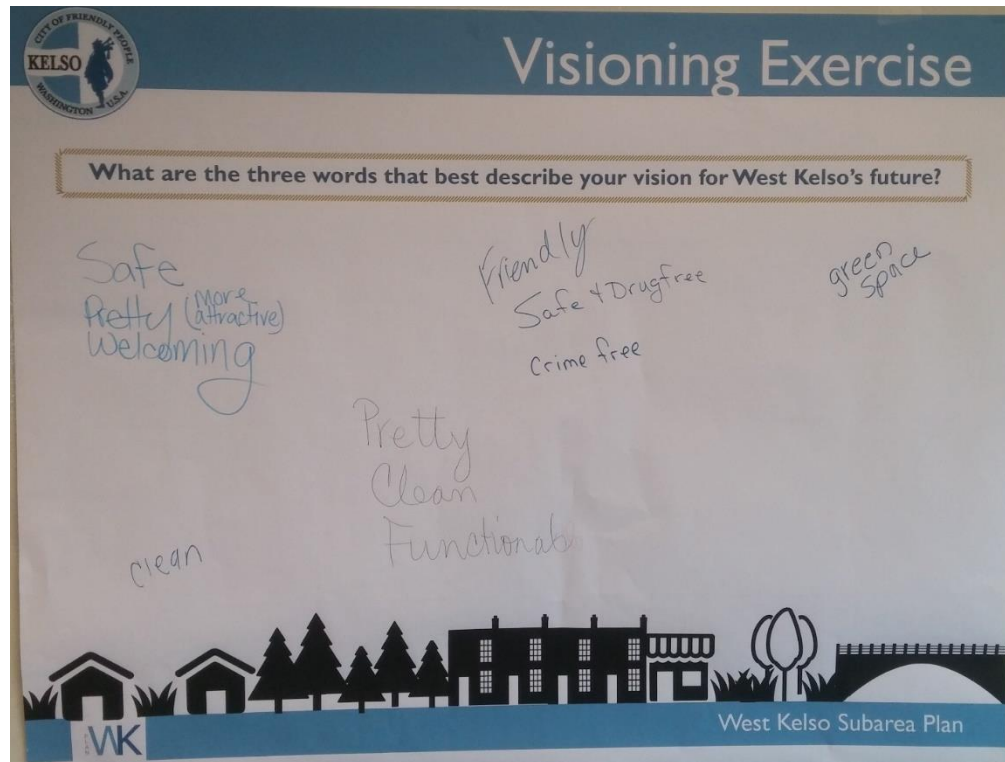 CITY OF FRIENDLY PEOPLE
KELSO
WASHINGTON U.S.A.
Visioning Exercise
What are the three words that best describe your vision for West Kelso's future?
Safe
Pretty (More attractive)
Welcoming
Friendly
Safe + Drugfree
Crime free
green
space
Pretty
Clean
Functionabl
clean
WK
West Kelso Subarea Plan